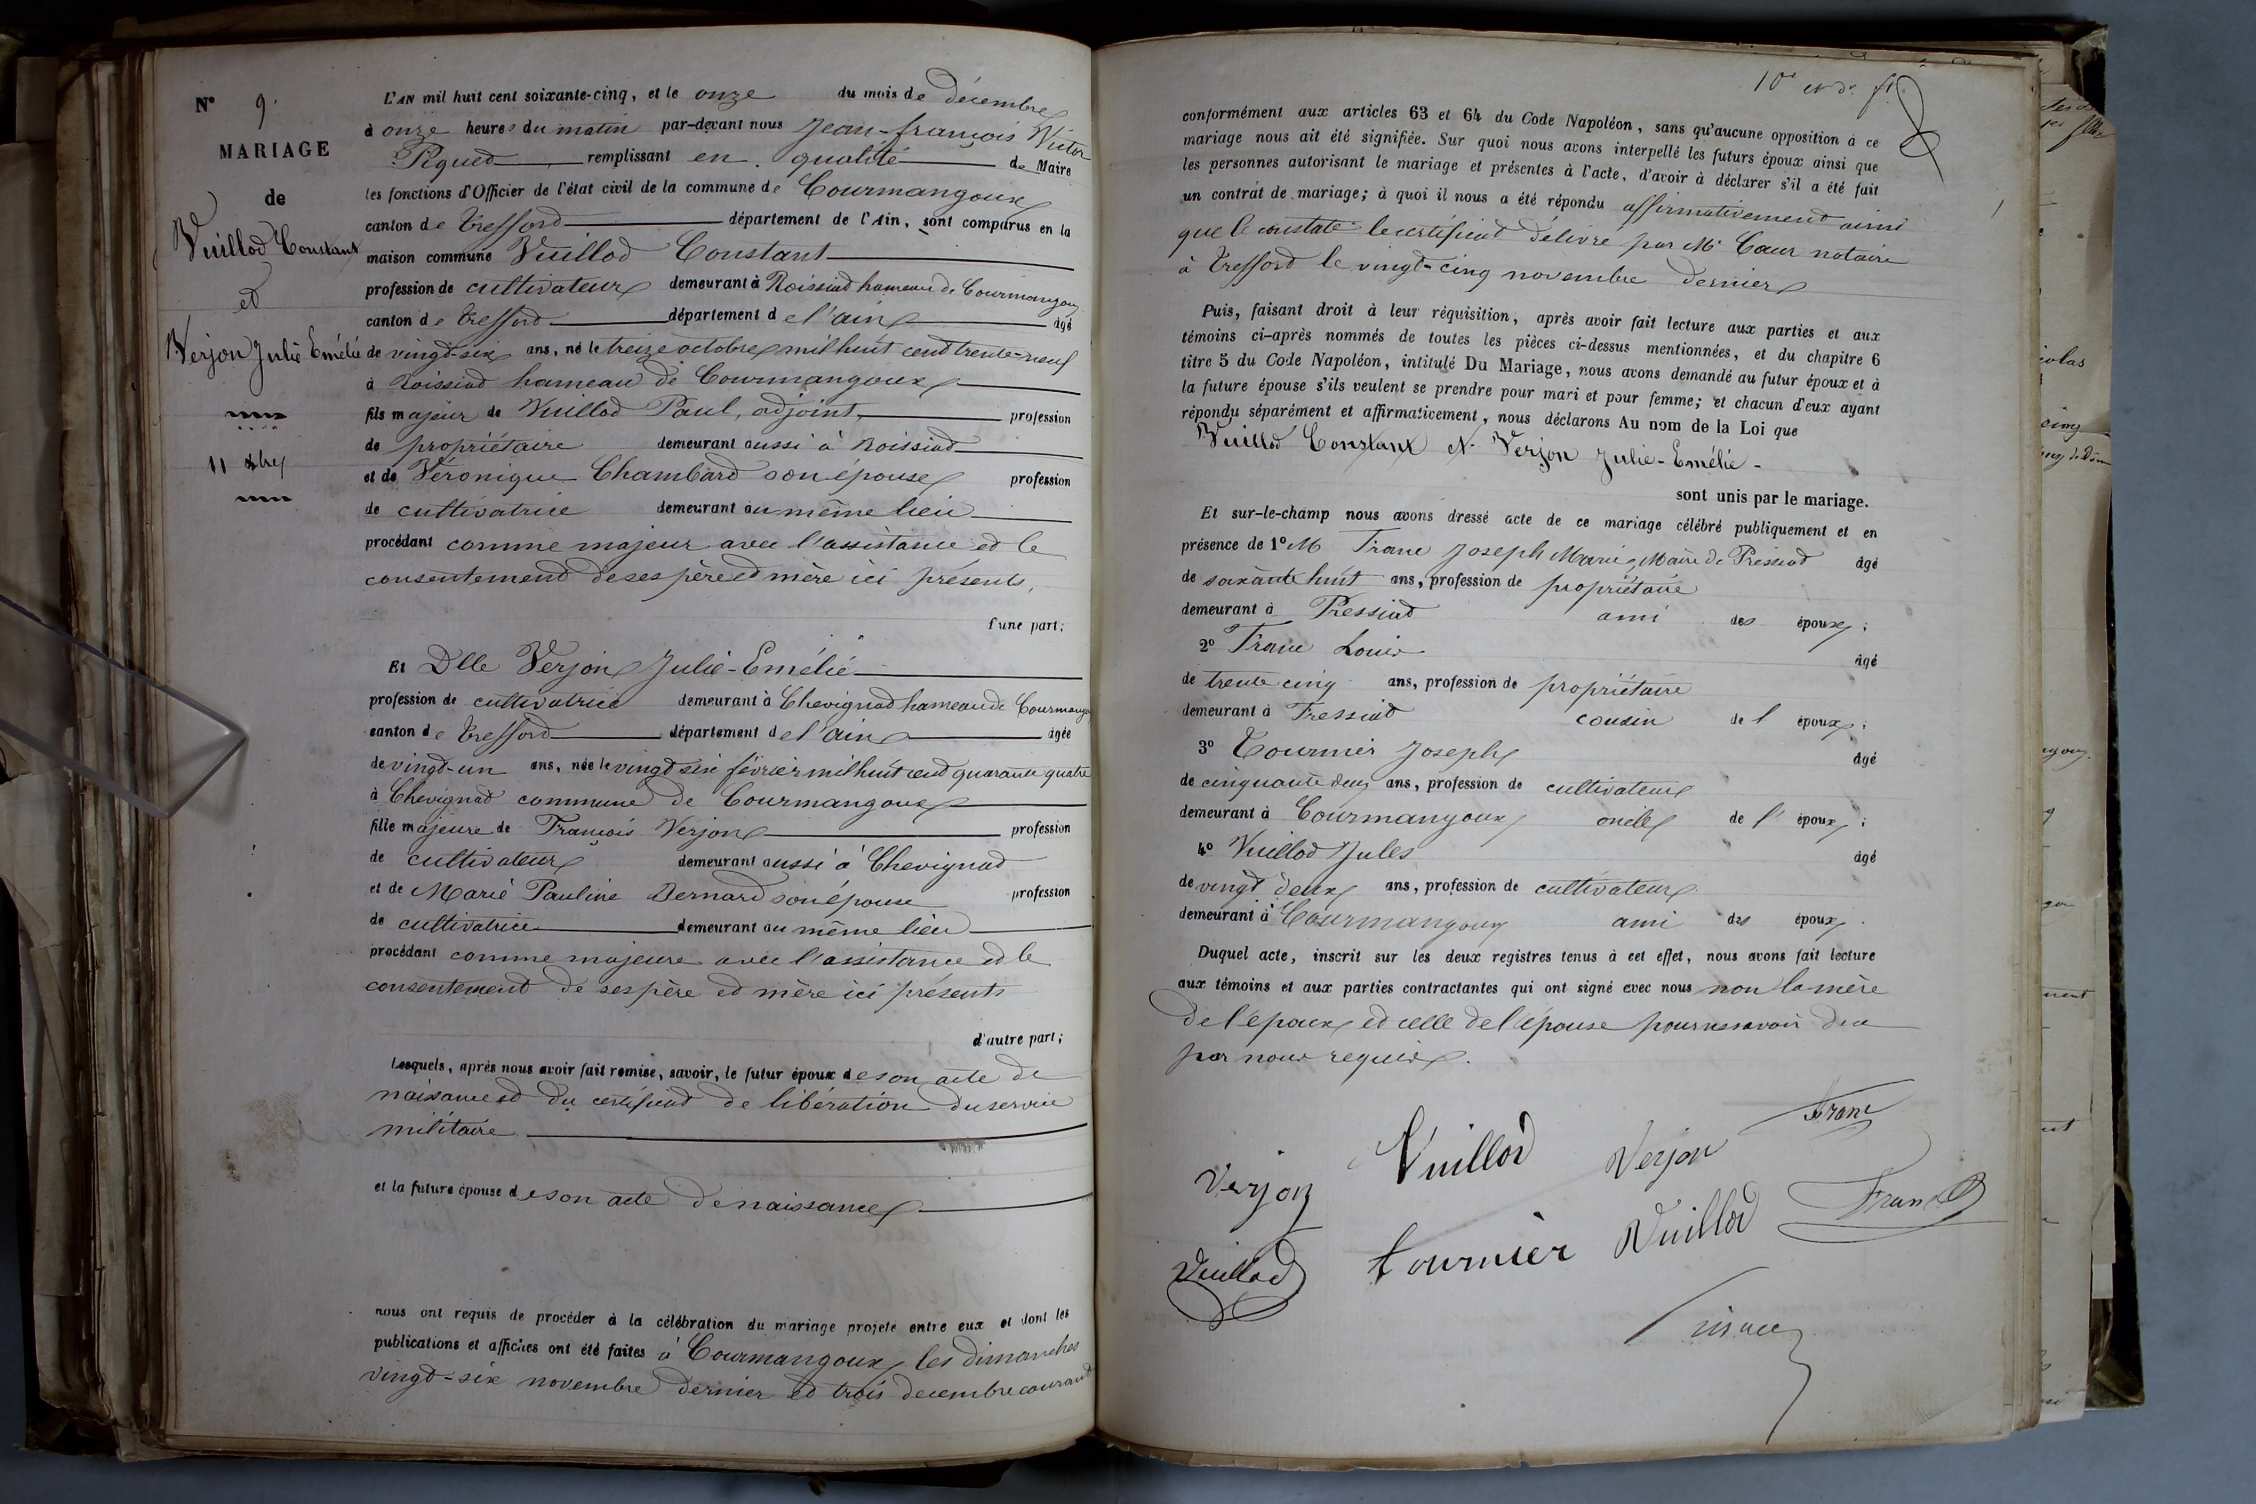 N° 9.
MARIAGE
de
Vuillod Constant
et
Verjon Julie Emélie
11 Xbre
L'AN mil huit cent soixante-cinq, et le onze du mois de décembre
à onze heures du matin par-devant nous Jean-françois Victor
Piqued remplissant en qualité de Maire
les fonctions d'Officier de l'état civil de la commune de Courmangoux
canton de Treffort département de l'Ain, sont comparus en la
maison commune Vuillod Constant
profession de cultivateur demeurant à Roissiad hameau de Courmangoux
canton de Treffort département de l'ain âgé
de vingt-six ans, né le treize octobre mil huit cent trente-neuf
à Roissiad hameau de Courmangoux
fils majeur de Vuillod Paul, adjoint, profession
de propriétaire demeurant aussi à Roissiad
et de Véronique Chambard son épouse profession
de cultivatrice demeurant au même lieu
procédant comme majeur avec l'assistance et le
consentement de ses père et mère ici présents,
d'une part;
Et Dlle Verjon Julie-Emélie
profession de cultivatrice demeurant à Chevignad hameau de Courmangoux
canton de Treffort département de l'ain âgée
de vingt-un ans, née le vingt six février mil huit cent quarante quatre
à Chevignad commune de Courmangoux
fille majeure de François Verjon profession
de cultivateur demeurant aussi à Chevignad
et de Marie Pauline Bernard son épouse profession
de cultivatrice demeurant au même lieu
procédant comme majeure avec l'assistance et le
consentement de ses père et mère ici présents
d'autre part;
Lesquels, après nous avoir fait remise, savoir, le futur époux de son acte de
naissance et du certificat de libération du service
militaire
et la future épouse de son acte de naissance
nous ont requis de procéder à la célébration du mariage projeté entre eux et dont les
publications et affiches ont été faites à Courmangoux les dimanches
vingt-six novembre dernier et trois decembre courant
10e et dr ft.
conformément aux articles 63 et 64 du Code Napoléon, sans qu'aucune opposition à ce
mariage nous ait été signifiée. Sur quoi nous avons interpellé les futurs époux ainsi que
les personnes autorisant le mariage et présentes à l'acte, d'avoir à déclarer s'il a été fait
un contrat de mariage; à quoi il nous a été répondu affirmativement ainsi
que le constate le certificat délivré par Me Cœur notaire
à Treffort le vingt-cinq novembre dernier
Puis, faisant droit à leur réquisition, après avoir fait lecture aux parties et aux
témoins ci-après nommés de toutes les pièces ci-dessus mentionnées, et du chapitre 6
titre 5 du Code Napoléon, intitulé Du Mariage, nous avons demandé au futur époux et à
la future épouse s'ils veulent se prendre pour mari et pour femme; et chacun d'eux ayant
répondu séparément et affirmativement, nous déclarons Au nom de la Loi que
Vuillod Constant et Verjon Julie-Emélie -
sont unis par le mariage.
Et sur-le-champ nous avons dressé acte de ce mariage célébré publiquement et en
présence de 1° M Franc Joseph Marie, Maire de Pressiad âgé
de soixante huit ans, profession de propriétaire
demeurant à Pressiad ami des époux;
2° Franc Louis âgé
de trente cinq ans, profession de propriétaire
demeurant à Pressiad cousin de l époux;
3° Tournier Joseph âgé
de cinquante deux ans, profession de cultivateur
demeurant à Courmangoux oncle de l' époux;
4° Vuillod Jules âgé
de vingt deux ans, profession de cultivateur
demeurant à Courmangoux ami des époux.
Duquel acte, inscrit sur les deux registres tenus à cet effet, nous avons fait lecture
aux témoins et aux parties contractantes qui ont signé avec nous non la mère
de l'époux et celle de l'épouse pour ne savoir de ce
par nous requises.
Franc
Vuillod Verjon
Verjon
Franc
Vuillod
Tournier
Vuillod